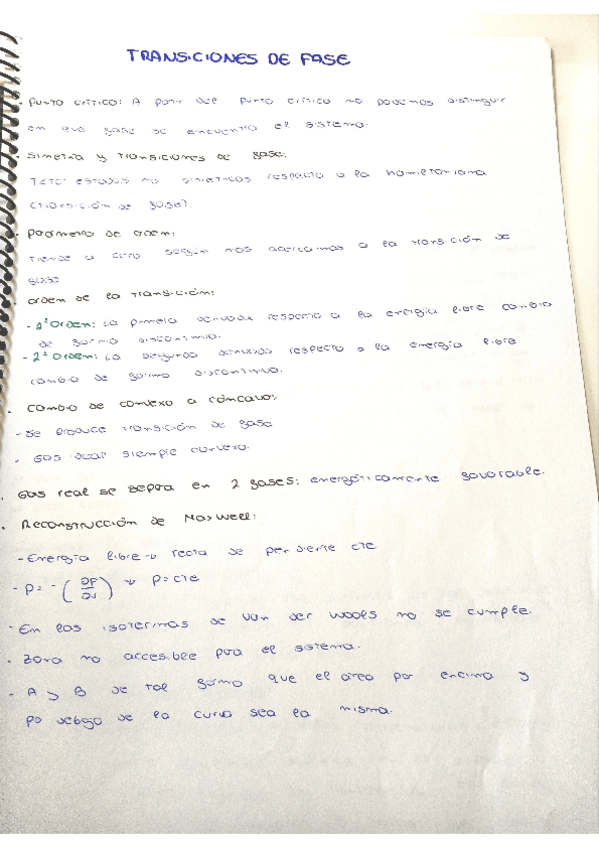 TRANSICIONES DE FASE
· Punto crítico: A partir del punto crítico no podemos distinguir
en que fase se encuentra el sistema.
· Simetría y transiciones de fase:
T<Tc: estados no simétricos respecto a la hamiltoniana
(transición de fase)
· Parámetro de orden:
Tiende a cero según nos acercamos a la transición de
fase
· Orden de la transición:
- 1º Orden: La primera derivada respecto a la energía libre cambia
de forma discontinua.
- 2º Orden: La segunda derivada respecto a la energía libre
cambia de forma discontinua.
· Cambio de convexo a cóncavo:
- Se produce transición de fase
· Gas ideal siempre convexo.
· Gas real se separa en 2 fases: energéticamente favorable.
· Reconstrucción de Maxwell:
- Energía libre → recta de pendiente cte
- P = - (∂F/∂V) → P = cte
- En las isotermas de Van der Waals no se cumple.
· Zona no accesible para el sistema.
- A y B de tal forma que el área por encima y
por debajo de la curva sea la misma.